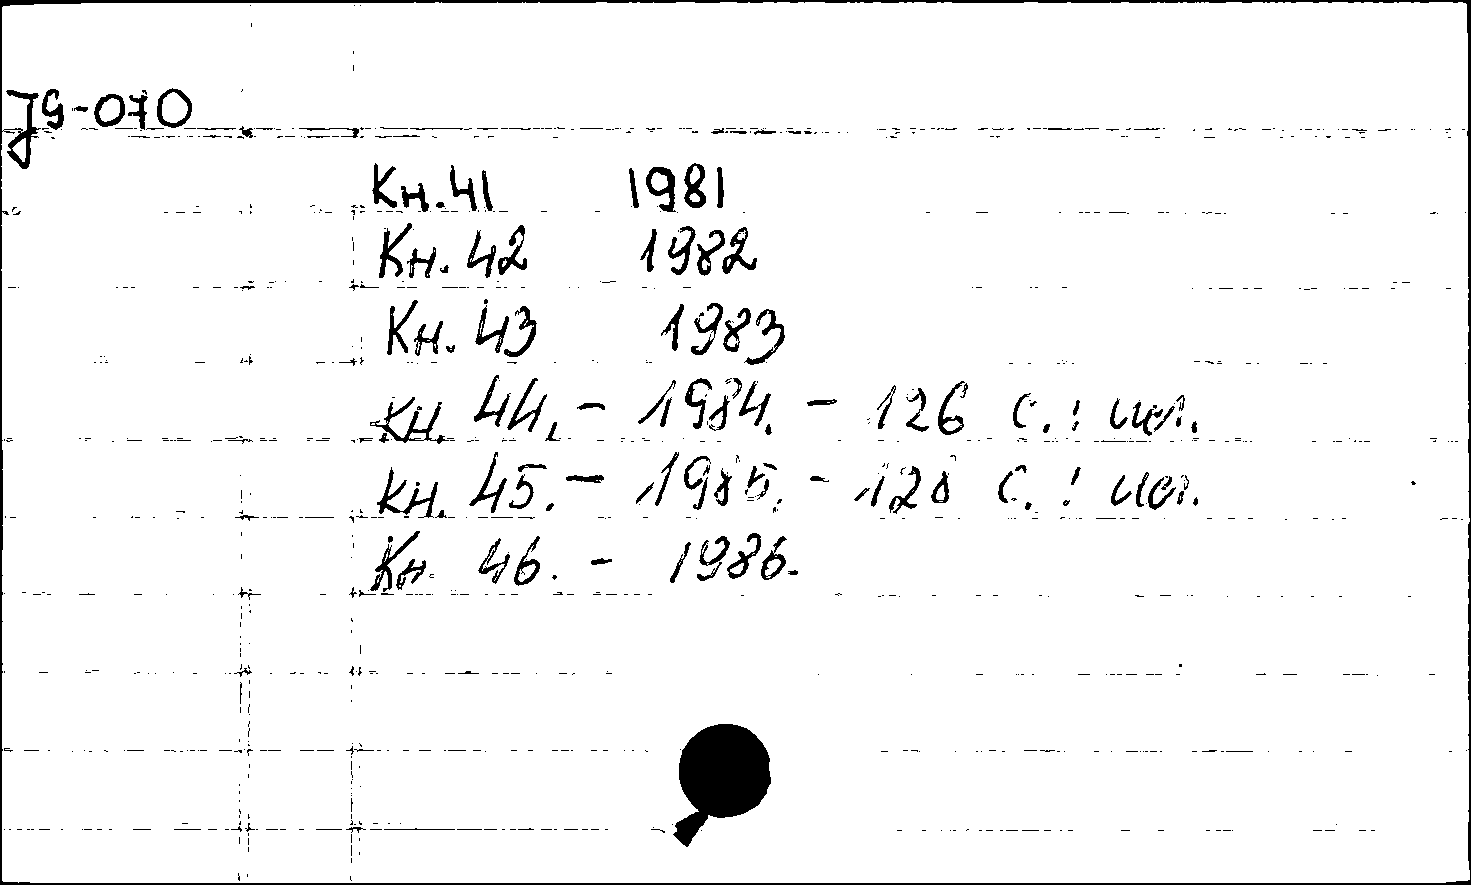 J9-070
Кн. 41 1981
Кн. 42 1982
Кн. 43 1983
Кн. 44. - 1984. - 126 с. : ил.
Кн. 45. - 1985. - 128 с. : ил.
Кн. 46. - 1986.